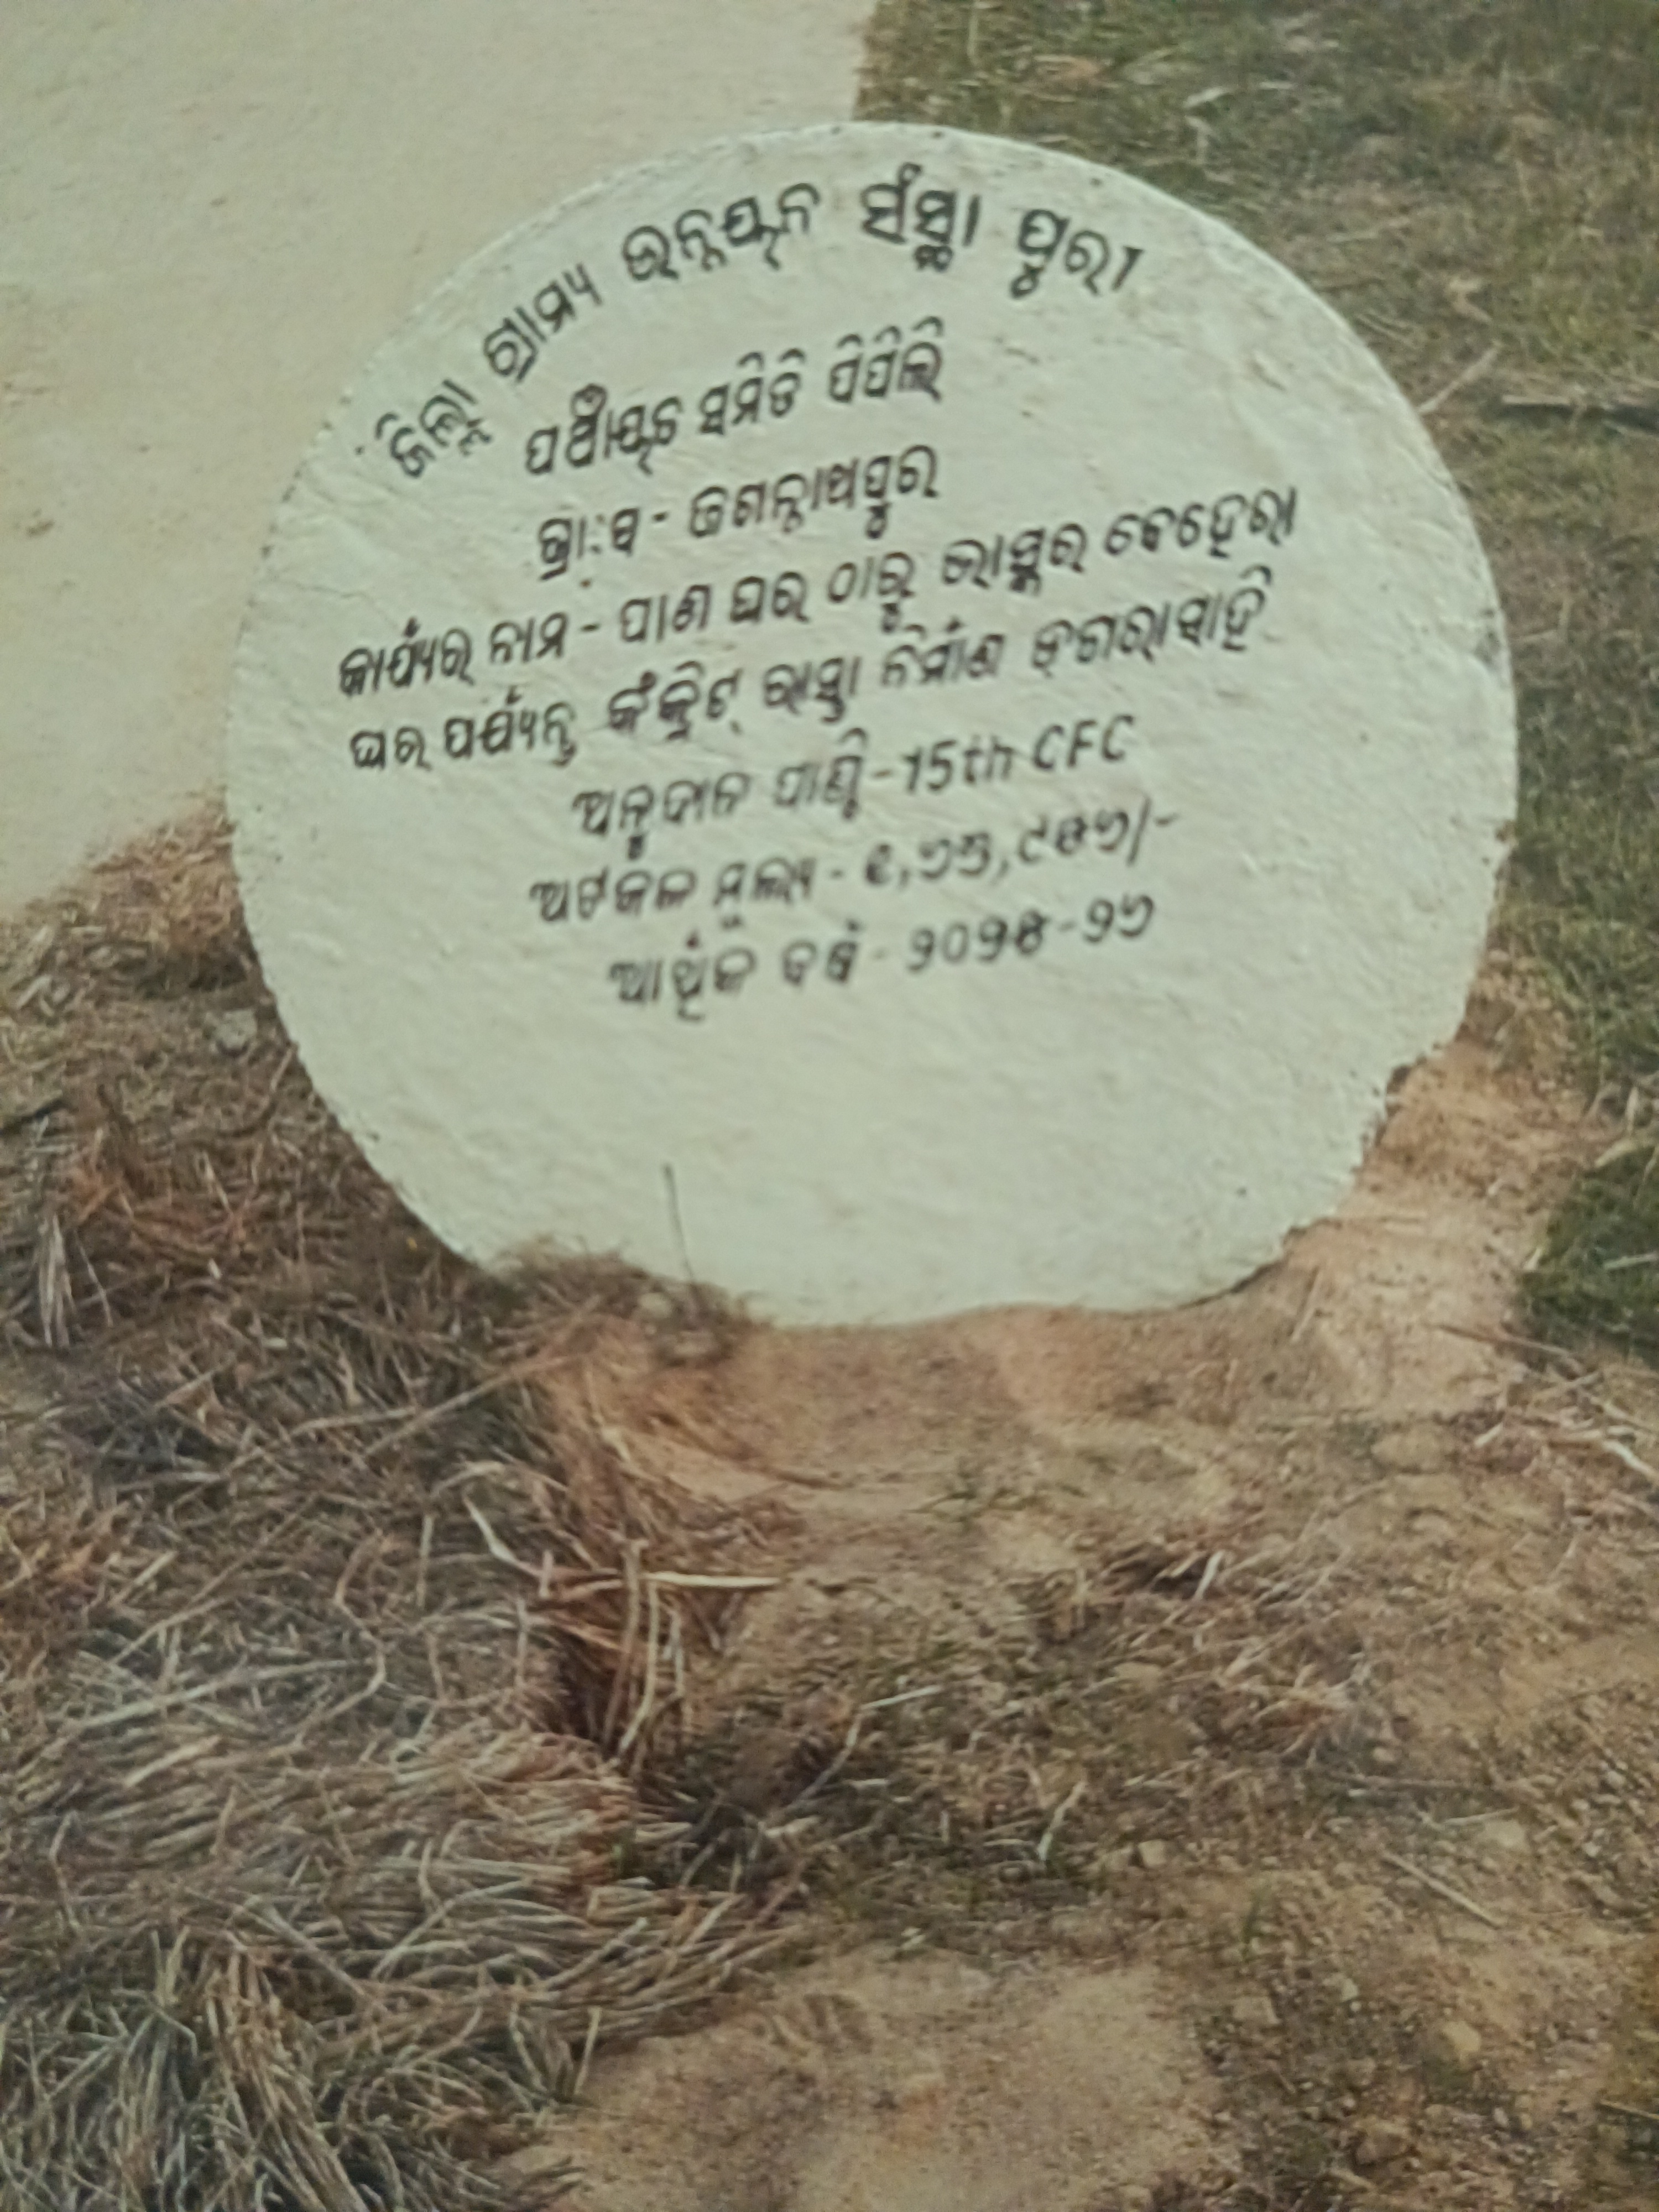 ଜିଲ୍ଲା ଗ୍ରାମ୍ୟ ଉନ୍ନୟନ ସଂସ୍ଥା ପୁରୀ
ପଞ୍ଚାୟତ ସମିତି ପିପିଲି
ଗ୍ରା:ପ - ଜଗନ୍ନାଥପୁର
କାର୍ଯ୍ୟର ନାମ - ପାଣ ଘର ଠାରୁ ଭାସ୍କର ବେହେରା
ଘର ପର୍ଯ୍ୟନ୍ତ କଂକ୍ରିଟ୍ ରାସ୍ତା ନିର୍ମାଣ
ଅନୁଦାନ ପାଣ୍ଠି - 15th CFC
ଅଟକଳ ମୂଲ୍ୟ -
ଆର୍ଥିକ ବର୍ଷ - ୨୦୨୫-୨୬